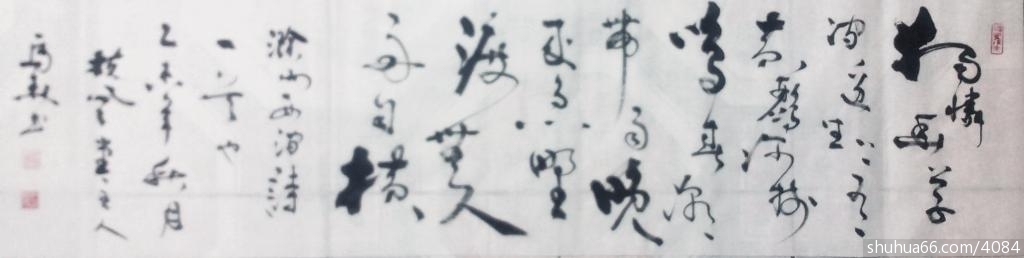 独憐幽草
涧边生上有
黄鹂深树
鸣春潮
带雨晚
来急野
渡無人
舟自横
滁州西涧詩
一首也
乙未年秋月
主人
shuhua66.com/4084